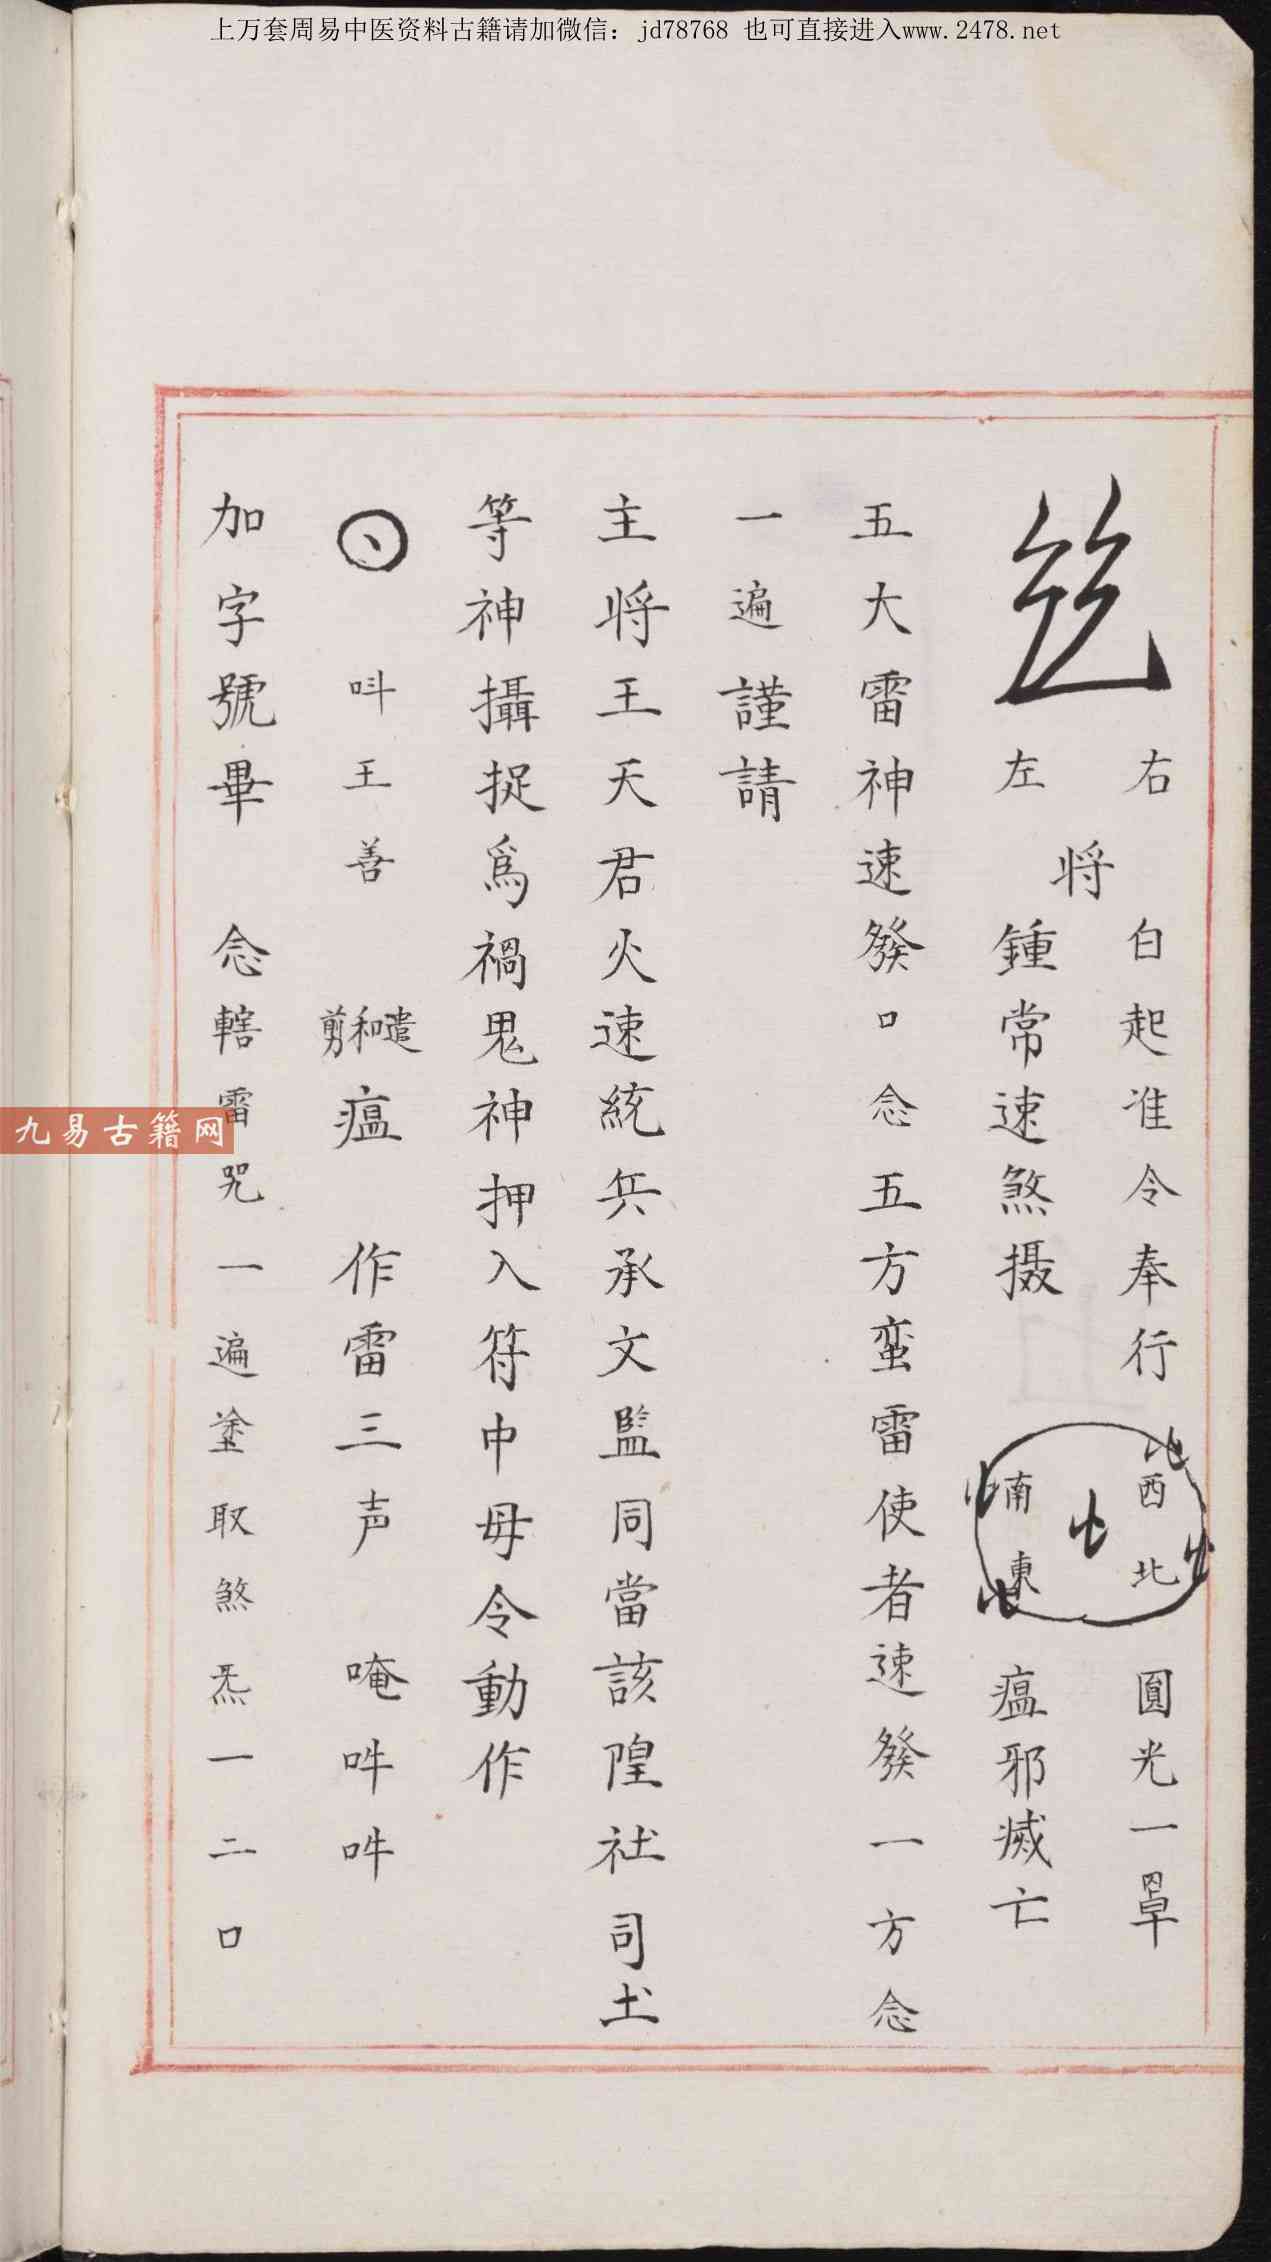 上万套周易中医资料古籍请加微信：jd78768 也可直接进入www.2478.net
右
左
将
白起准令奉行
鍾常速煞摄
西
北
南
東
圓光一罩
瘟邪滅亡
五大雷神速發口念五方蛮雷使者速發一方念
一遍謹請
主将王天君火速統兵承文監同當該隍社司土
等神攝捉為禍鬼神押入符中毋令動作
呌王善
遣和剪瘟 作雷三声 唵吽吽
加字號畢 念轄雷咒一遍塗取煞炁一二口
九易古籍网